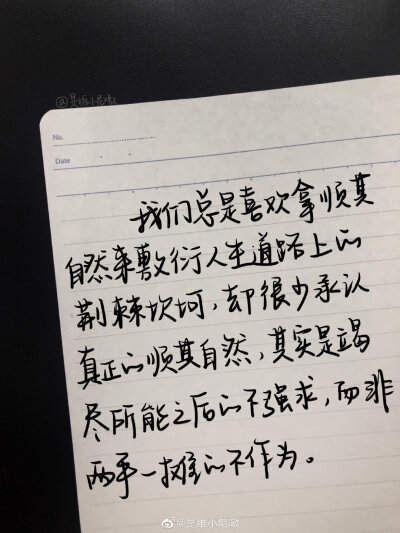 @是维小尼嗷
No.
Date
我们总是喜欢拿顺其
自然来敷衍人生道路上的
荆棘坎坷,却很少承认
真正的顺其自然,其实是竭
尽所能之后的不强求,而非
两手一摊的不作为。
@是维小尼嗷